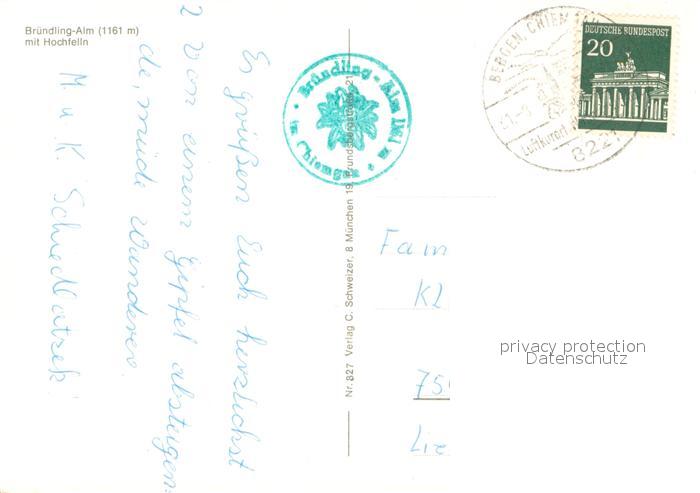 Bründling-Alm (1161 m)
mit Hochfelln
Es grüßen Euch herzlichst
2 von einem Gipfel absteigen-
de, müde Wanderer.
M. u K.
Bründling-Alm 1161 m
im Chiemgau
Nr. 827 Verlag C. Schweizer, 8 München 19,
BERGEN, CHIEMGAU
Luftkurort
822
DEUTSCHE BUNDESPOST
20
Fam
privacy protection
Datenschutz